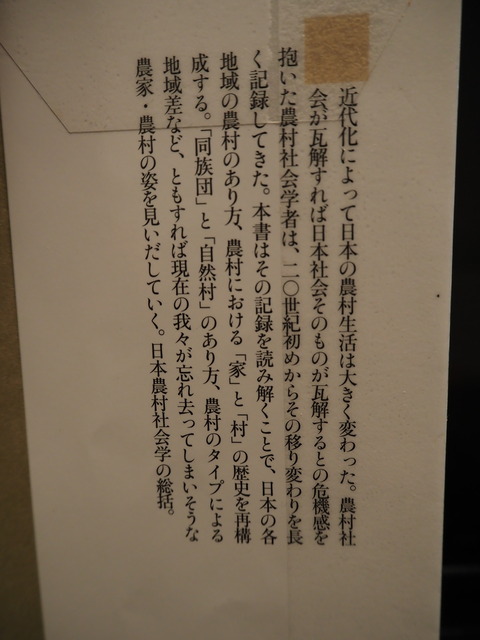 近代化によって日本の農村生活は大きく変わった。農村社
会が瓦解すれば日本社会そのものが瓦解するとの危機感を
抱いた農村社会学者は、二〇世紀初めからその移り変わりを長
く記録してきた。本書はその記録を読み解くことで、日本の各
地域の農村のあり方、農村における「家」と「村」の歴史を再構
成する。「同族団」と「自然村」のあり方、農村のタイプによる
地域差など、ともすれば現在の我々が忘れ去ってしまいそうな
農家・農村の姿を見いだしていく。日本農村社会学の総括。